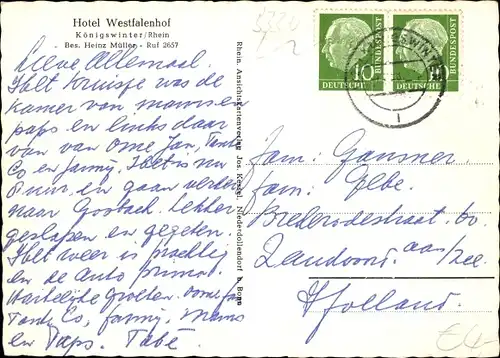 Hotel Westfalenhof
Königswinter/Rhein
Bes. Heinz Müller - Ruf 2657
Lieve Allemael.
Het kruisje was de
kamer van mams en
paps en links daar
van van ome Jan, Tante
Co en Janny. Het is nu
9 uur en gaan verder
naar lekker
geslapen en gegeten.
Het weer is prachtig
en de auto prima.
Hartelijke groeten. ome Jan
Tante Co, Janny, Mams
en Paps. Tabé.
Rhein. Ansichtskartenverlag Jos. Kessel, Niederdollendorf b. Bonn
10
DEUTSCHE
BUNDESPOST
10
DEUTSCHE
BUNDESPOST
Fam:
Fam: Elbe.
Brederodestraat
Zandvoort aan/zee.
Holland.
€4-